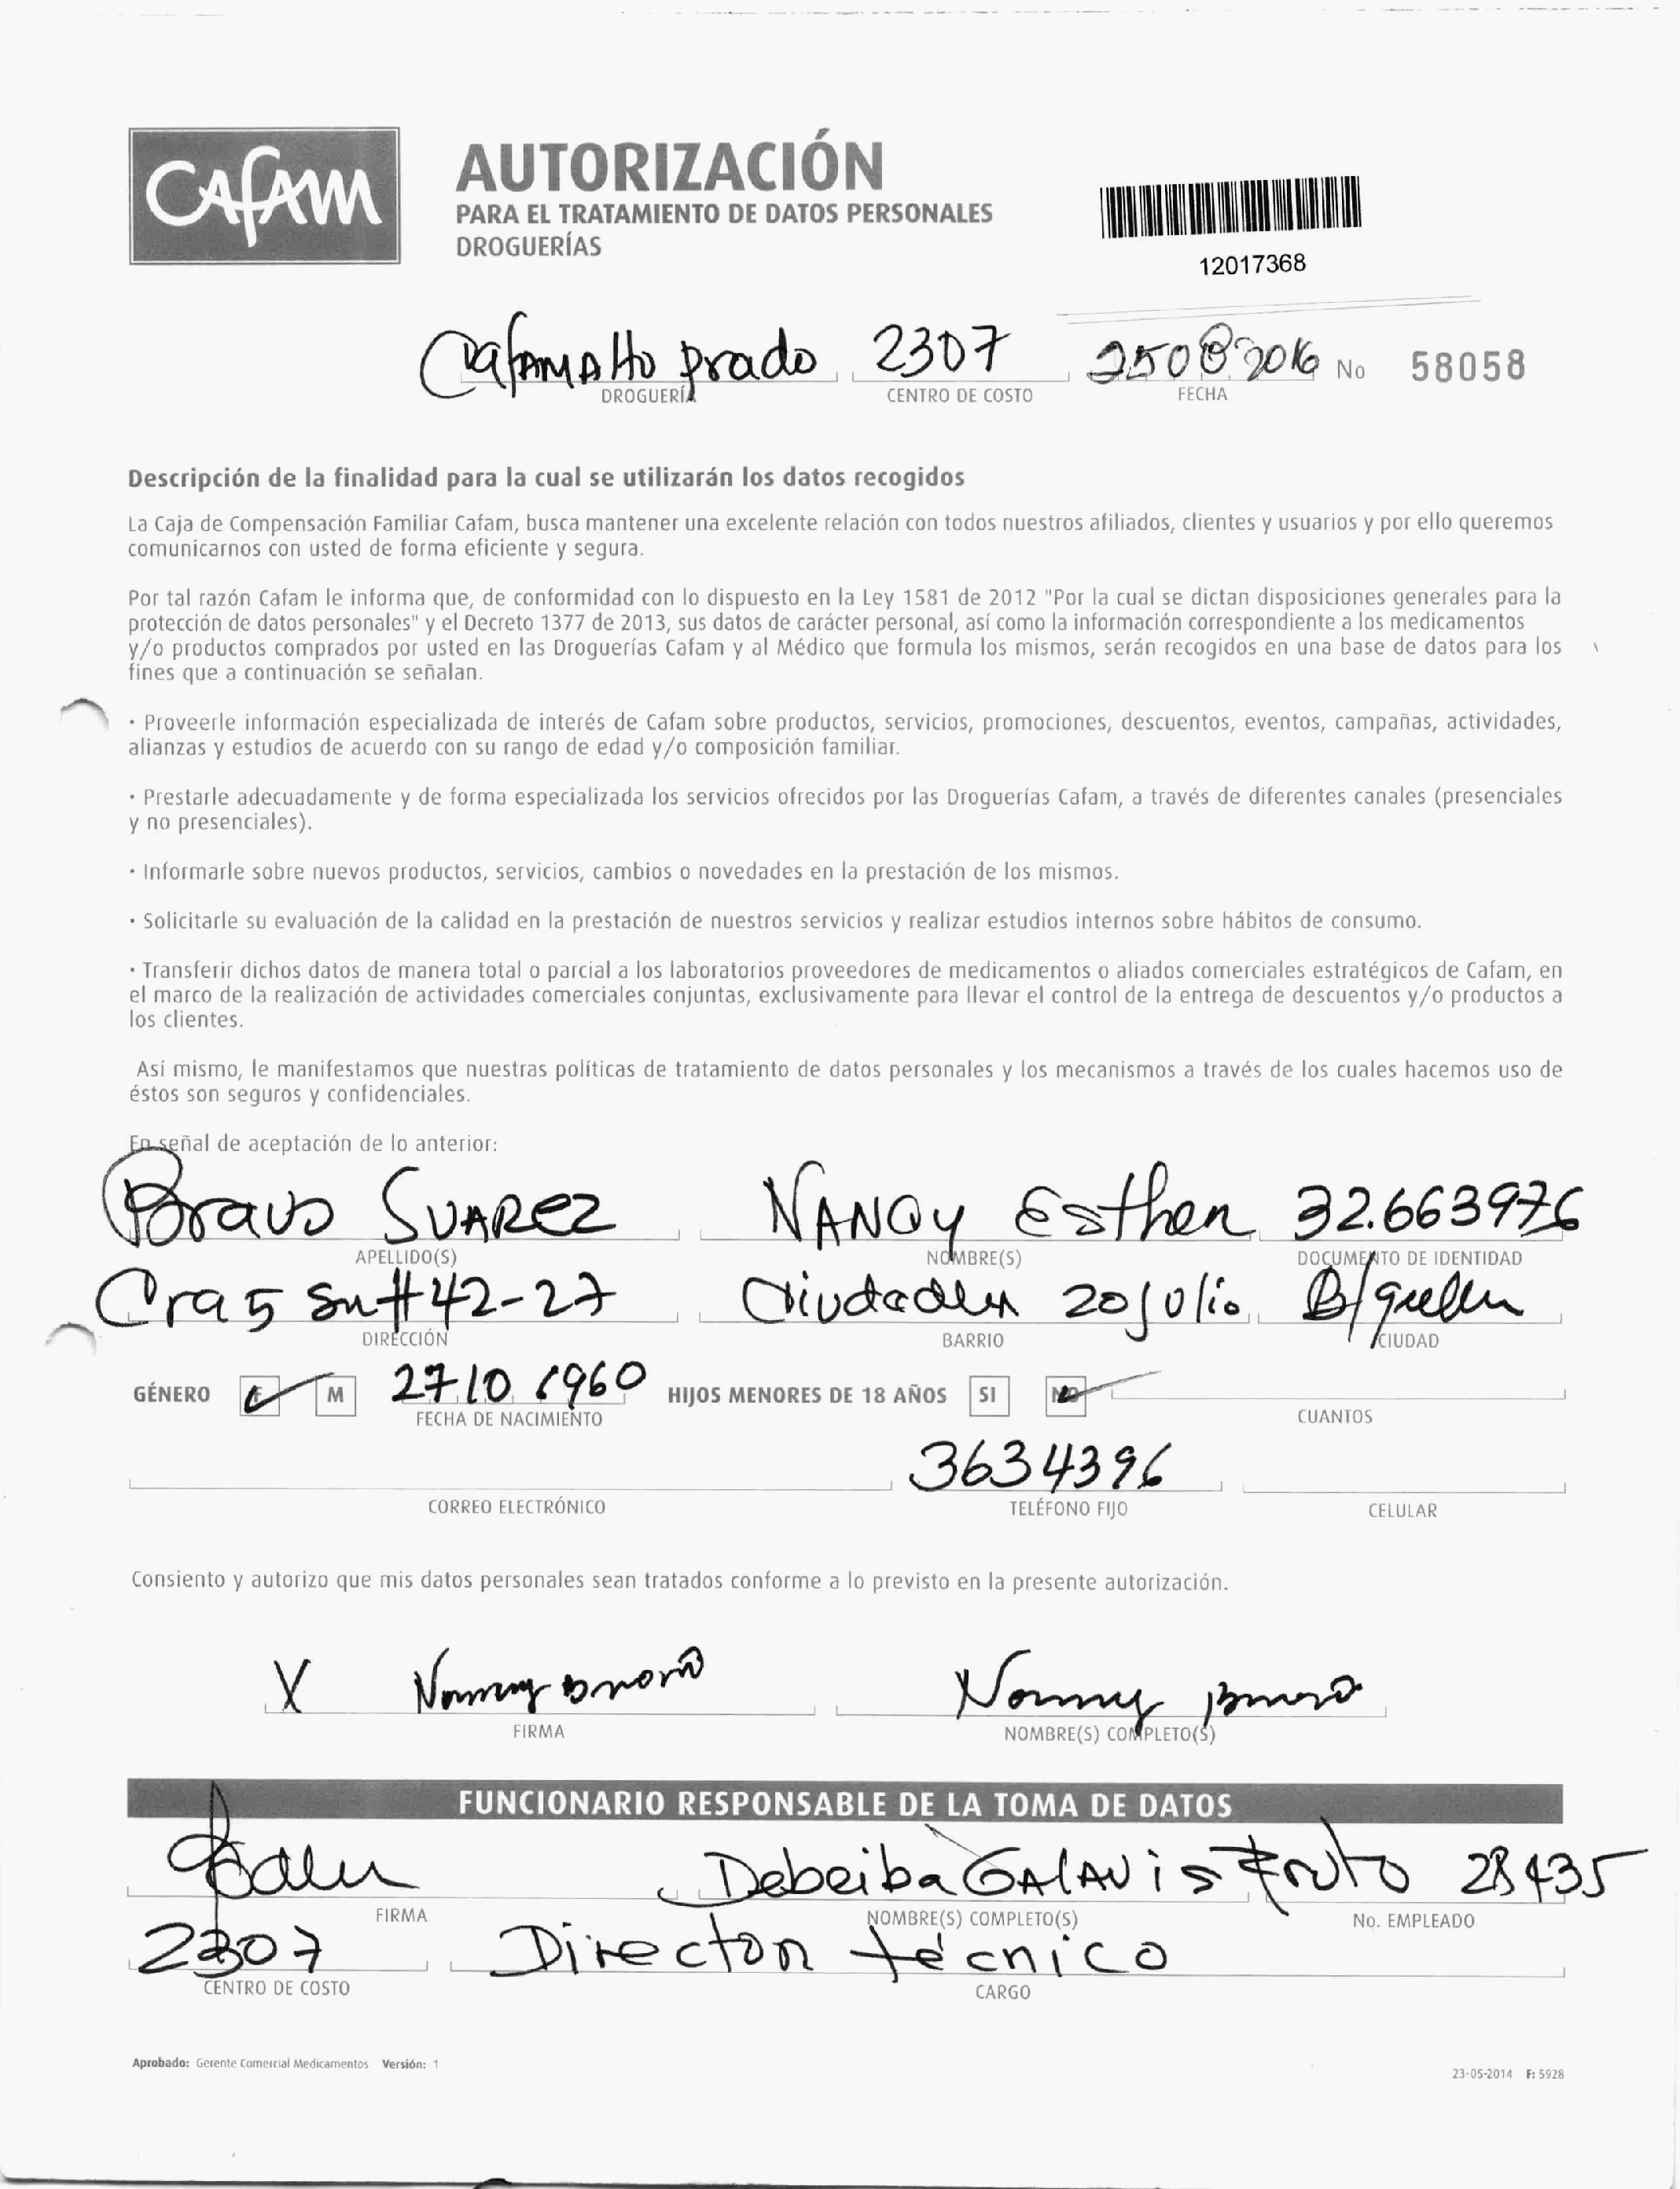 CAFAM
AUTORIZACIÓN
PARA EL TRATAMIENTO DE DATOS PERSONALES
DROGUERÍAS
12017368
CafamAlto prado 2307 25082016 No 58058
DROGUERÍA CENTRO DE COSTO FECHA
Descripción de la finalidad para la cual se utilizarán los datos recogidos
La Caja de Compensación Familiar Cafam, busca mantener una excelente relación con todos nuestros afiliados, clientes y usuarios y por ello queremos
comunicarnos con usted de forma eficiente y segura.
Por tal razón Cafam le informa que, de conformidad con lo dispuesto en la Ley 1581 de 2012 "Por la cual se dictan disposiciones generales para la
protección de datos personales" y el Decreto 1377 de 2013, sus datos de carácter personal, así como la información correspondiente a los medicamentos
y/o productos comprados por usted en las Droguerías Cafam y al Médico que formula los mismos, serán recogidos en una base de datos para los
fines que a continuación se señalan.
· Proveerle información especializada de interés de Cafam sobre productos, servicios, promociones, descuentos, eventos, campañas, actividades,
alianzas y estudios de acuerdo con su rango de edad y/o composición familiar.
· Prestarle adecuadamente y de forma especializada los servicios ofrecidos por las Droguerías Cafam, a través de diferentes canales (presenciales
y no presenciales).
· Informarle sobre nuevos productos, servicios, cambios o novedades en la prestación de los mismos.
· Solicitarle su evaluación de la calidad en la prestación de nuestros servicios y realizar estudios internos sobre hábitos de consumo.
· Transferir dichos datos de manera total o parcial a los laboratorios proveedores de medicamentos o aliados comerciales estratégicos de Cafam, en
el marco de la realización de actividades comerciales conjuntas, exclusivamente para llevar el control de la entrega de descuentos y/o productos a
los clientes.
Así mismo, le manifestamos que nuestras políticas de tratamiento de datos personales y los mecanismos a través de los cuales hacemos uso de
éstos son seguros y confidenciales.
En señal de aceptación de lo anterior:
Bravo SUAREZ NANCY Esther 32.663976
APELLIDO(S) NOMBRE(S) DOCUMENTO DE IDENTIDAD
Cra 5 Su #42-27 20 Julio B/quilla
DIRECCIÓN BARRIO CIUDAD
GÉNERO F M 27 10 1960 HIJOS MENORES DE 18 AÑOS SI NO
FECHA DE NACIMIENTO CUANTOS
3634396
CORREO ELECTRÓNICO TELÉFONO FIJO CELULAR
Consiento y autorizo que mis datos personales sean tratados conforme a lo previsto en la presente autorización.
X Nancy Bravo Nancy Bravo
FIRMA NOMBRE(S) COMPLETO(S)
FUNCIONARIO RESPONSABLE DE LA TOMA DE DATOS
Debeiba GALAVIS Fruto 28435
FIRMA NOMBRE(S) COMPLETO(S) No. EMPLEADO
2307 Director técnico
CENTRO DE COSTO CARGO
Aprobado: Gerente Comercial Medicamentos Versión: 1
23-05-2014 F: 5928